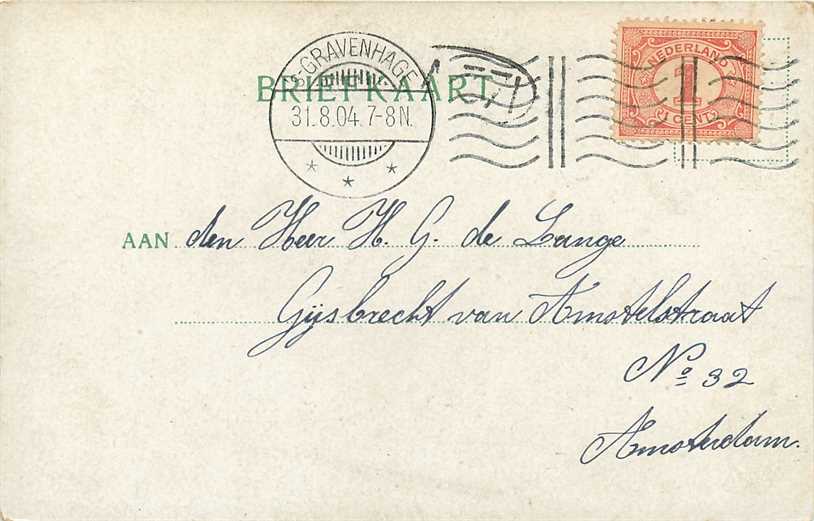 'S-GRAVENHAGE
31.8.04.7-8N.
BRIEFKAART
NEDERLAND
1
1 CENT
AAN den Heer H. G. de Lange
Gijsbrecht van Amstelstraat
No 32
Amsterdam.